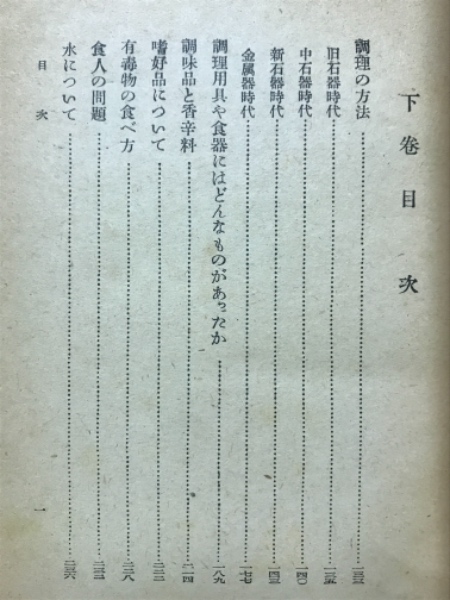 下巻目次
調理の方法……一三三
旧石器時代……一三五
中石器時代……一四〇
新石器時代……一四三
金属器時代……一七七
調理用具や食器にはどんなものがあったか……一八九
調味品と香辛料……二一四
嗜好品について……二二二
有毒物の食べ方……二二八
食人の問題……二三二
水について……二三六
目次
一